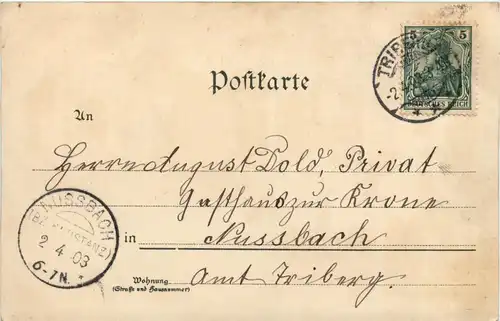 5
TRIBERG
DEUTSCHES REICH
Postkarte
An
Herrn August Dold, Privat
Gasthaus zur Krone
in Nussbach
Amt Triberg.
Wohnung
(Straße und Hausnummer)
NUSSBACH
2 4 03
6-7N.